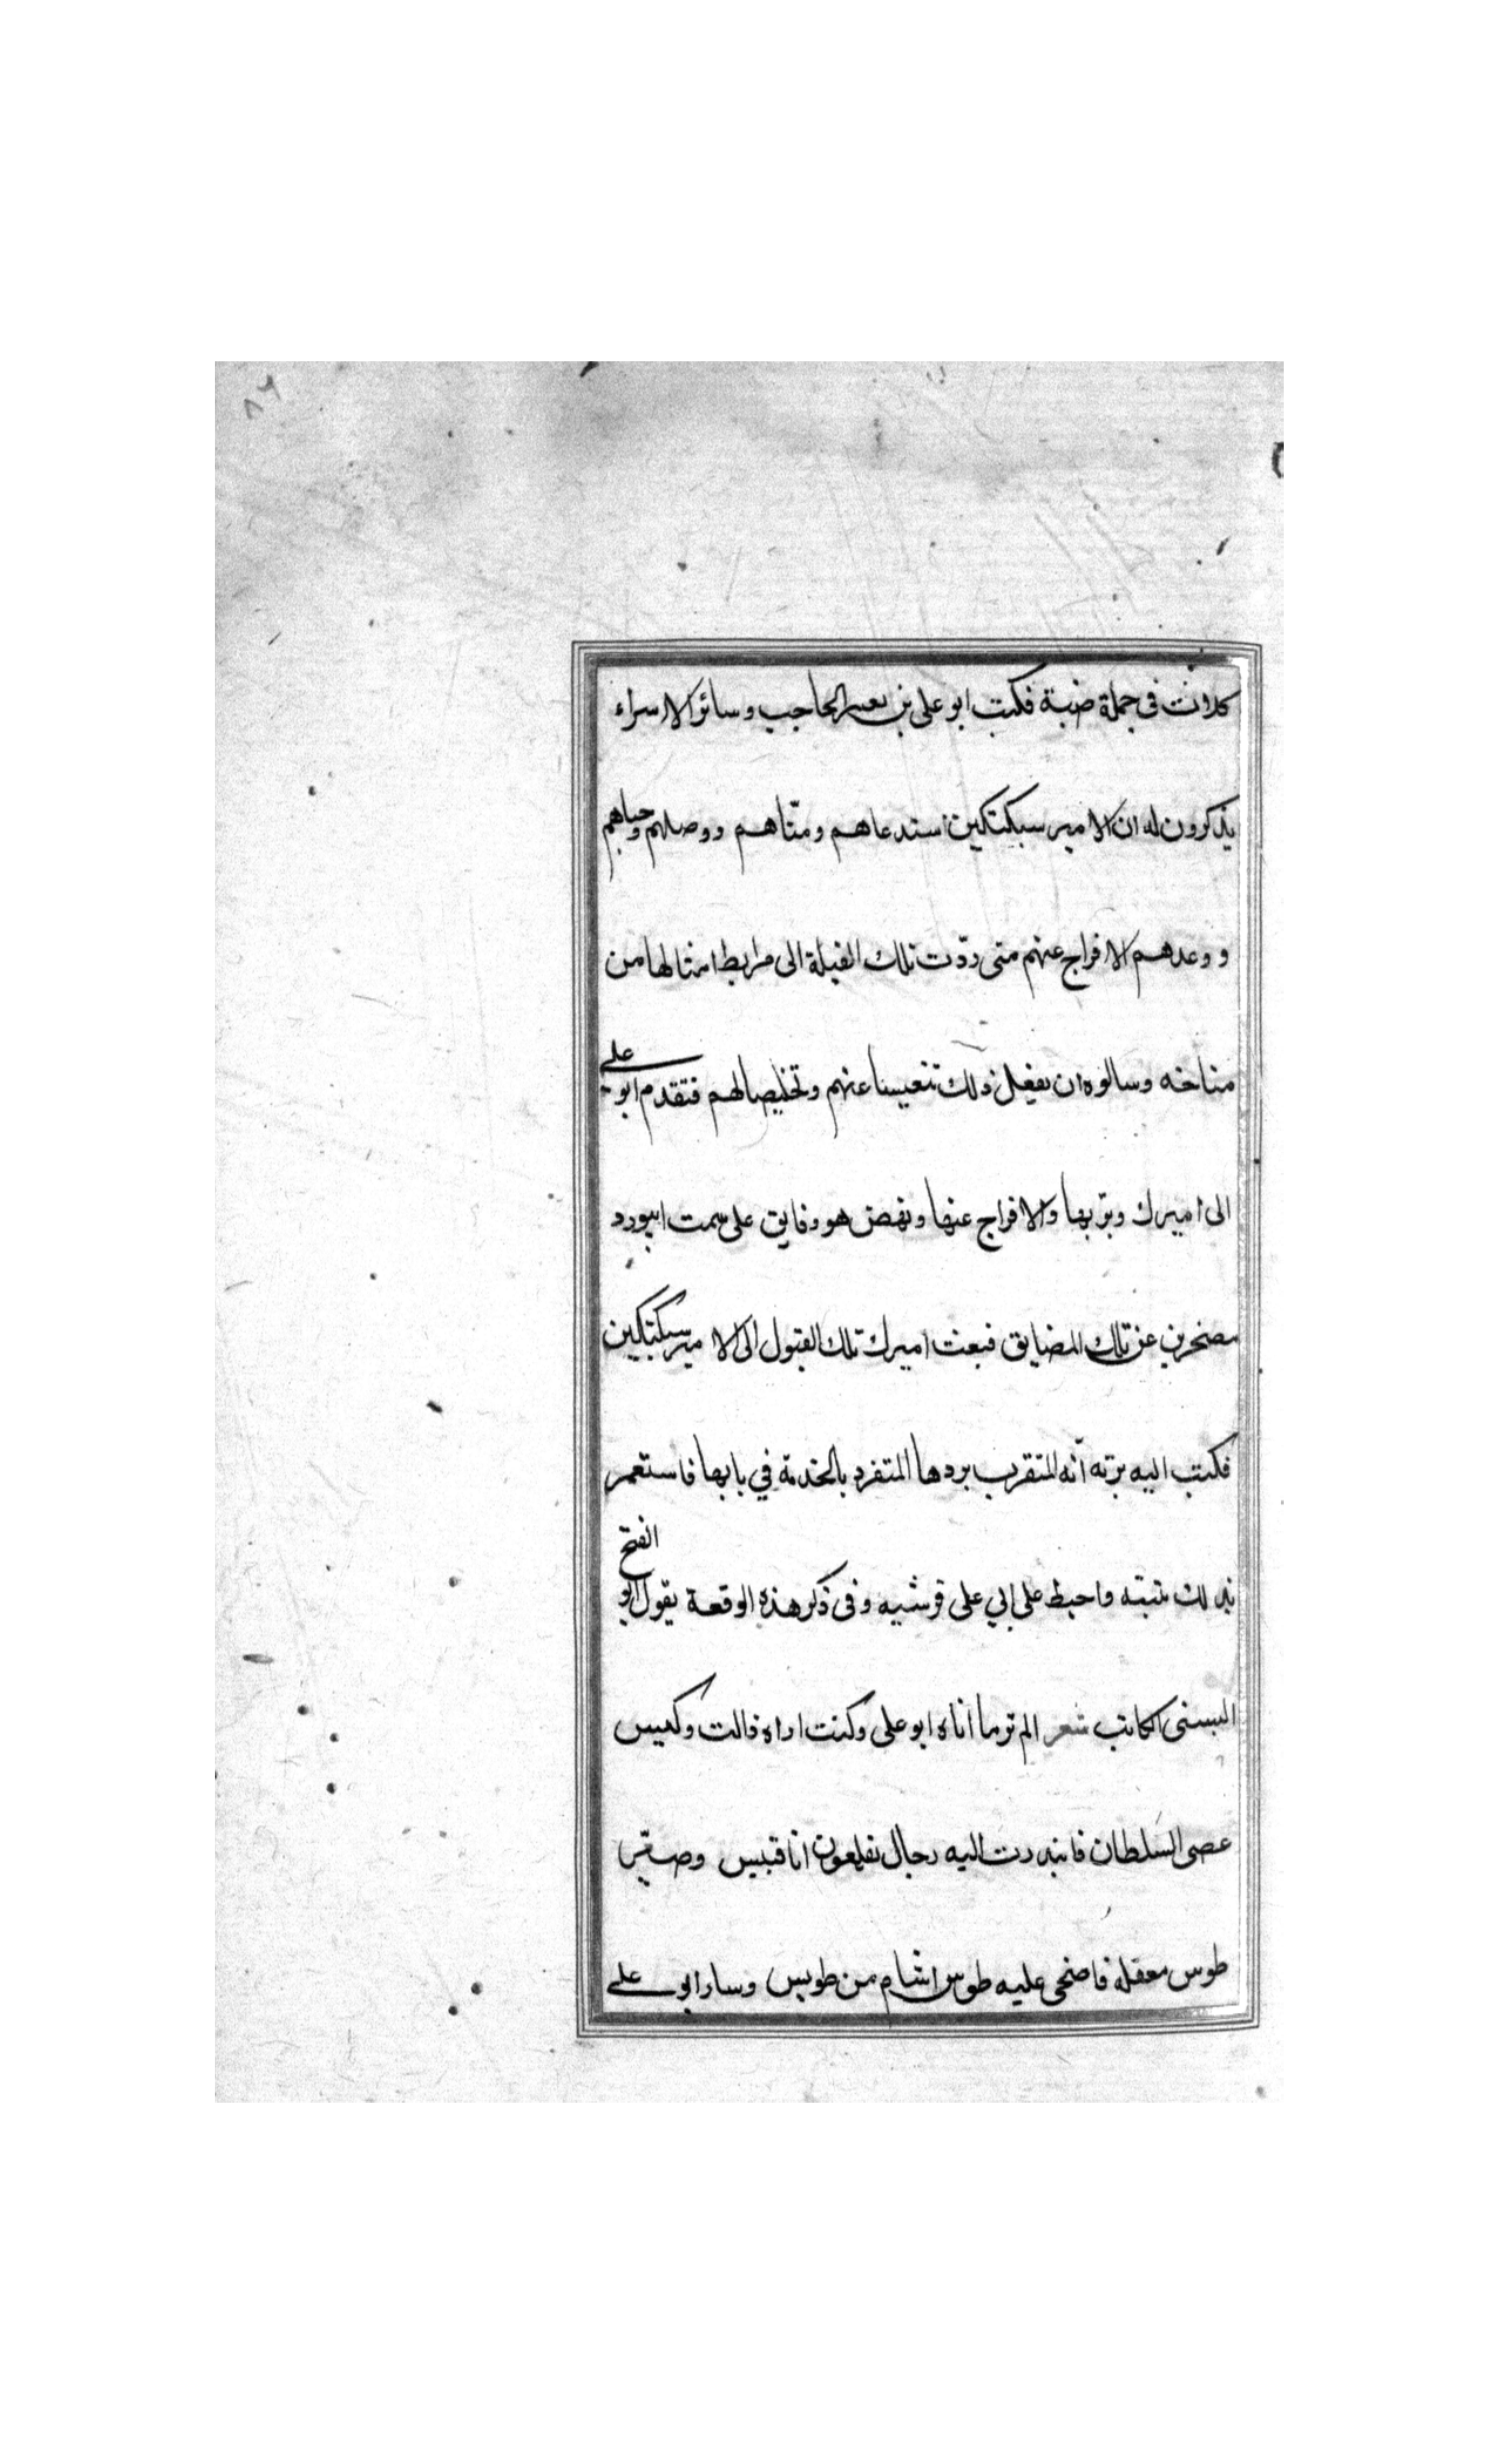 ٨٦
كلات في جملة ضبة فكتب ابو علي بن بعسر الحاجب وسائر الاسراء
يذكرون له ان الامير سبكتكين استدعاهم ومنّاهم ووصلهم وحباهم
ووعدهم الافراج عنهم متى ردّت تلك الفيلة الى مرابط امثالها من
مناخه وسالوه ان يفعل ذلك تنفيسا عنهم وتخليصا لهم فتقدم ابو علي
الى اميرك وبربها والافراج عنها ونهض هو وفايق على سمت ابيورد
مصخرين عن تلك المضايق فبعث اميرك تلك الفيول الى الامير سبكتكين
فكتب اليه برّبه انّه المتقرب بردها المتفرد بالخدمة في بابها فاستعمر
بذلك تبنته واحبط على ابي على قرشيه وفى ذكر هذه الوقعة يقول ابو الفتح
البستى الكاتب شعر الم تر ما اتاه ابو على وكنت اراه ذالت وكيس
عصى السّلطان فابتدرت اليه رجال نقلعون اناقبيس وصيّر
طوس معقله فاضحى عليه طوس اشام من طويس وسار ابو علي